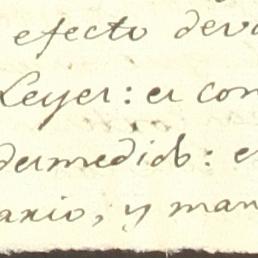 efecto devo
Leyer: er con
dermedido: e
axio, y man